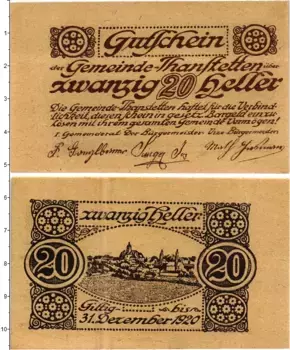 Gutschein
der Gemeinde Thanstetten über
zwanzig 20 Heller
Die Gemeinde Thanstetten haftet für die Verbind-
lichkeit, diesen Schein in gesetz. Bargeld einzu-
lösen mit ihrem gesamten Gemeinde Vermögen!
1. Gemeinderat Der Bürgermeister Vize Bürgermeister
zwanzig Heller
20 20
Giltig bis
31. Dezember 1920
1
2
3
4
5
6
7
8
9
10